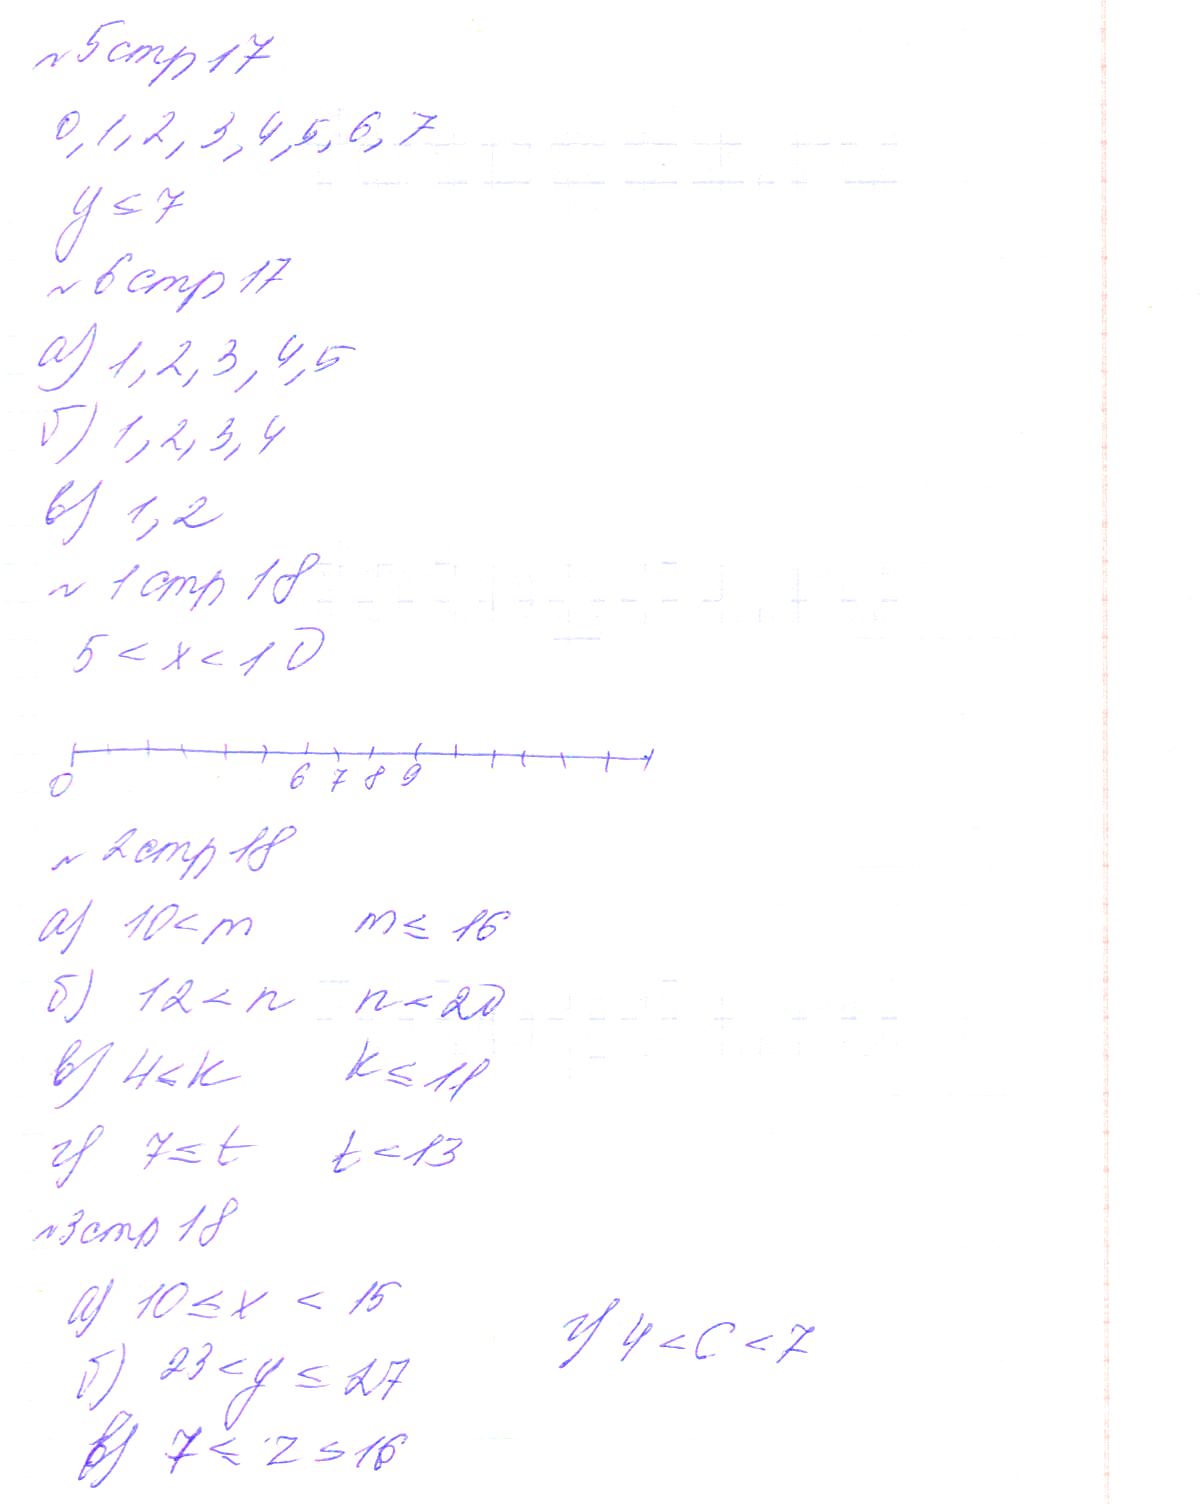 №5 стр 17
0, 1, 2, 3, 4, 5, 6, 7
y ≤ 7
№6 стр 17
а) 1, 2, 3, 4, 5
б) 1, 2, 3, 4
в) 1, 2
№ 1 стр 18
5 < x < 10
0 6 7 8 9
№ 2 стр 18
а) 10 < m m ≤ 16
б) 12 < n n < 20
в) 4 ≤ k k ≤ 11
г) 7 ≤ t t < 13
№3 стр 18
а) 10 ≤ x < 15
г) 4 < C < 7
б) 23 < y ≤ 27
в) 7 ≤ z ≤ 16